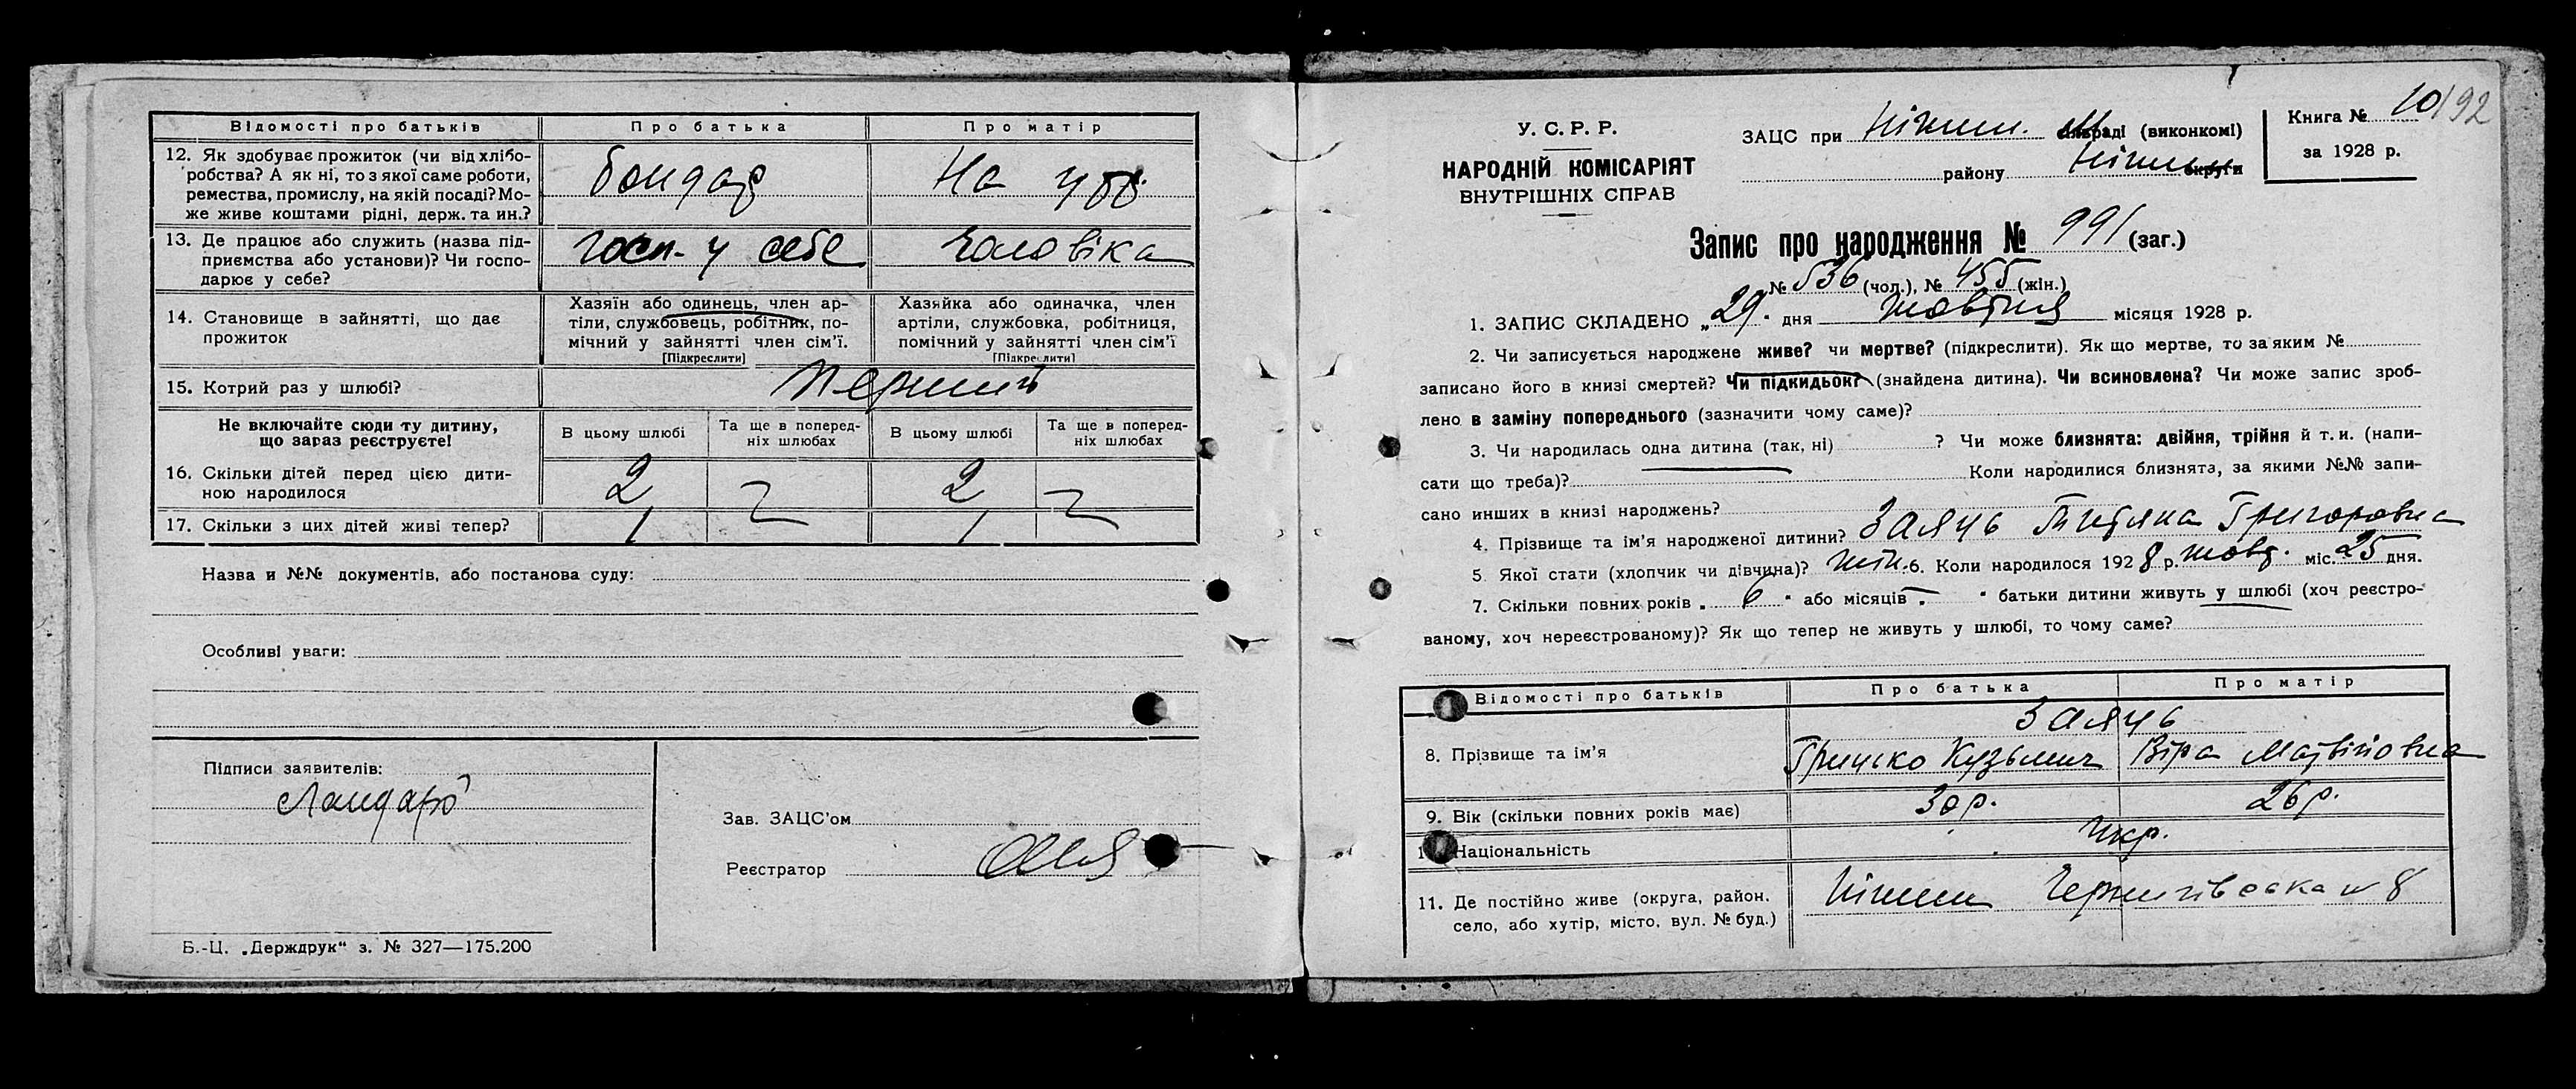 Відомості про батьків Про батька Про матір
12. Як здобуває прожиток (чи від хлібо-
робства? А як ні, то з якої саме роботи,
ремества, промислу, на якій посаді? Мо-
же живе коштами рідні, держ. та ин.?
бондар На утр.
13. Де працює або служить (назва під-
приємства або установи)? Чи госпо-
дарює у себе?
госп- у себе чоловіка
14. Становище в зайнятті, що дає
прожиток
Хазяїн або одинець, член ар-
тіли, службовець, робітник, по-
мічний у зайнятті член сім'ї.
[Підкреслити]
Хазяйка або одиначка, член
артіли, службовка, робітниця,
помічний у зайнятті член сім'ї
[Підкреслити]
15. Котрий раз у шлюбі? перший
Не включайте сюди ту дитину,
що зараз реєструєте!
В цьому шлюбі Та ще в поперед-
ніх шлюбах В цьому шлюбі Та ще в поперед-
ніх шлюбах
16. Скільки дітей перед цією дити-
ною народилося
2 2
17. Скільки з цих дітей живі тепер? 1 1
Назва и №№ документів, або постанова суду:
Особливі уваги:
Підписи заявителів:
Зав. ЗАЦС'ом
Реєстратор
Б.-Ц. „Держдрук“ з. № 327—175.200
У. С. Р. Р.
НАРОДНІЙ КОМІСАРІЯТ
ВНУТРІШНІХ СПРАВ
ЗАЦС при Ніжин. сільраді (виконкомі)
району Ніжин округи
Книга № 10 192
за 1928 р.
Запис про народження № 991 (заг.)
№ 536 (чол.), № 455 (жін.)
1. ЗАПИС СКЛАДЕНО „29. дня жовтня місяця 1928 р.
2. Чи записується народжене живе? чи мертве? (підкреслити). Як що мертве, то за яким №
записано його в книзі смертей? Чи підкидьок? (знайдена дитина). Чи всиновлена? Чи може запис зроб-
лено в заміну попереднього (зазначити чому саме)?
3. Чи народилась одна дитина (так, ні) ? Чи може близнята: двійня, трійня й т. и. (напи-
сати що треба)? Коли народилися близнята, за якими №№ запи-
сано инших в книзі народжень?
4. Прізвище та ім'я народженої дитини? Заяць Титяна Григоровна
5 Якої стати (хлопчик чи дівчина)? жін. 6. Коли народилося 1928 р. жовт. міс. 25 дня.
7. Скільки повних років „ 6 “ або місяців „ “ батьки дитини живуть у шлюбі (хоч реєстро-
ваному, хоч нереєстрованому)? Як що тепер не живуть у шлюбі, то чому саме?
Відомості про батьків Про батька Про матір
8. Прізвище та ім'я
Заяць
Грицько Кузьмич Віра Матвійовна
9. Вік (скільки повних років має) 30 р. 26 р.
Національність Укр.
11. Де постійно живе (округа, район.
село, або хутір, місто, вул. № буд.)
Ніжин Чернигівська № 8